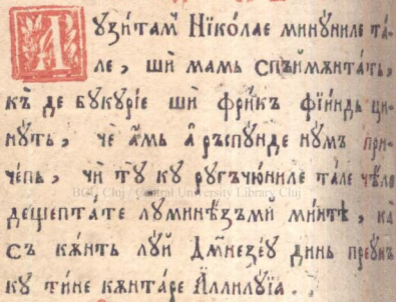 Аузи́тамꙋ Нїко́лае минꙋ́ниле та́-
ле , шѝ мамь спъймѫнта́ть ,
къ де бꙋкꙋрі́е шѝ фри́къ фїи́ндь ци-
нꙋ́ть , че а́мь а̀ ръспꙋ́нде нꙋмъ при-
че́пь , чѝ тꙋ кꙋ рꙋгъчю́ниле та́ле че́ло
дещепта́те лꙋминѣ́зъмй ми́нтѣ , ка
съ кѫ́нть лꙋй Дмнезе́ꙋ динь преꙋ́нъ
кꙋ ти́не кѫнта́ре А҆ллилꙋ́їа .
BCU Cluj / Central University Library Cluj